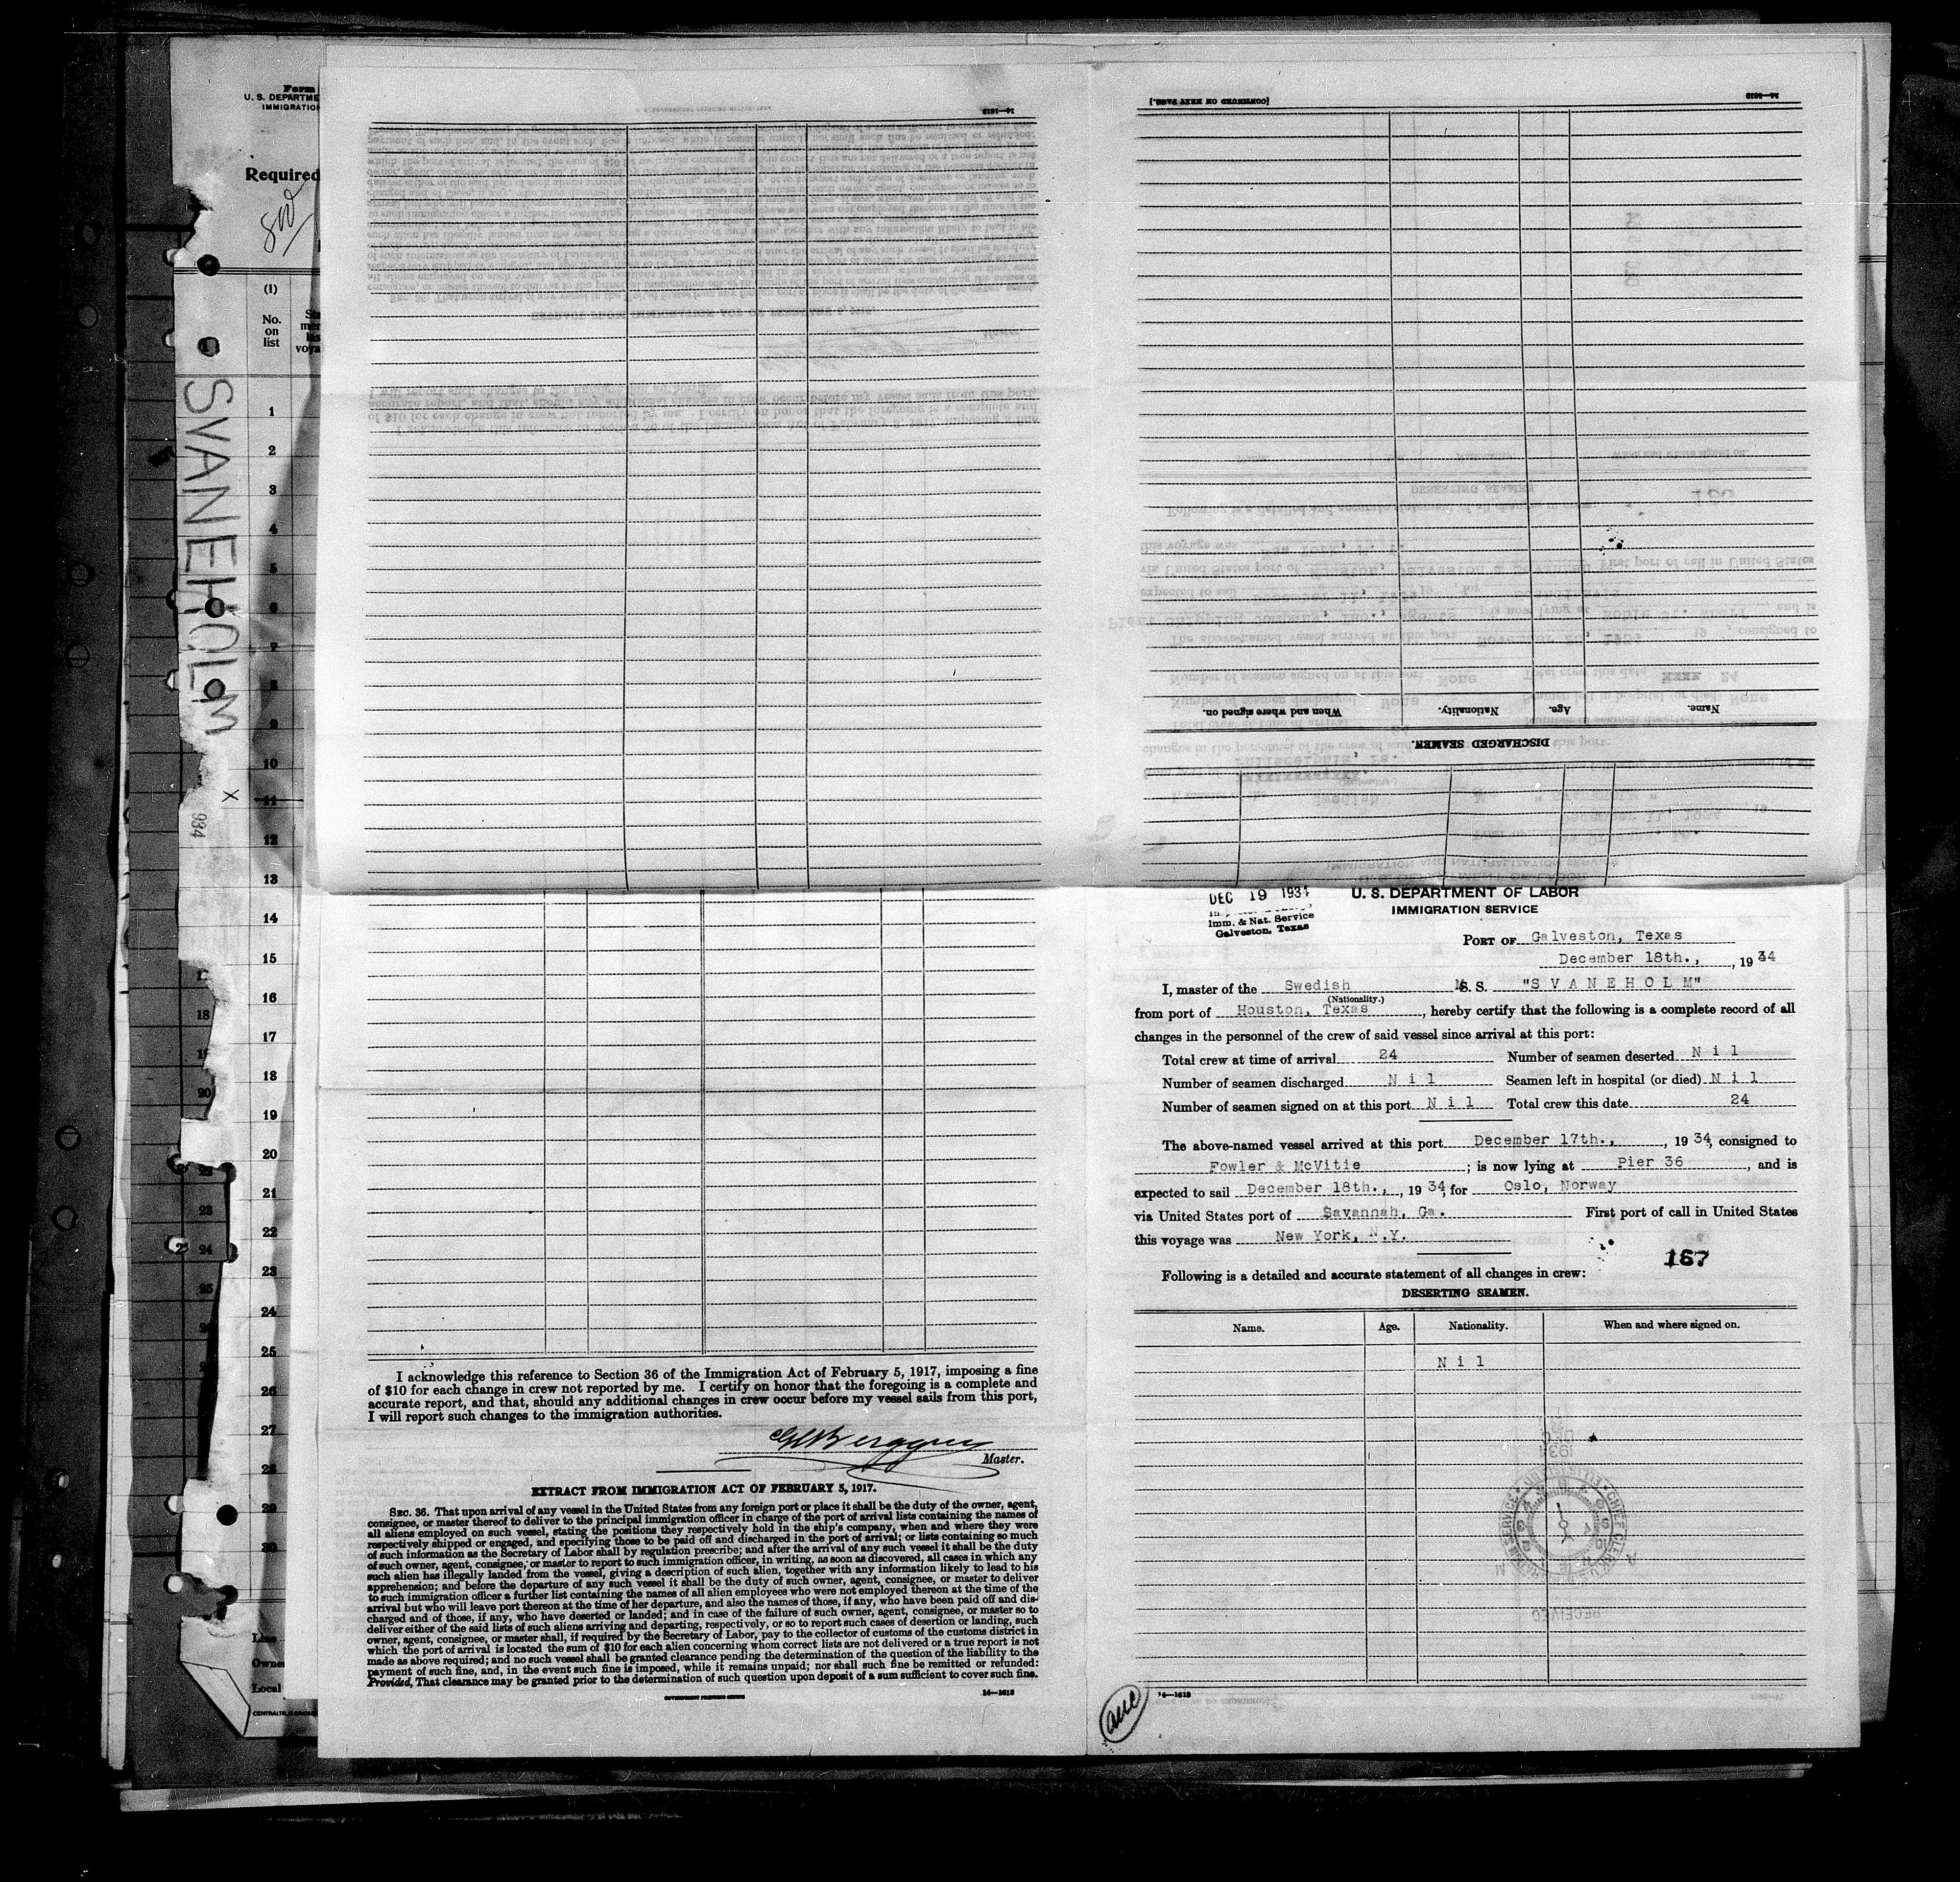 Form
U. S. DEPARTME
IMMIGRATIO
Required
(1)
No.
on
list
SVANEHOLM
X
934
1
2
3
4
5
6
7
8
9
10
11
12
13
14
15
16
17
18
19
20
21
22
23
24
25
26
27
28
29
30
Line
Owne
Local
16—1613
[CONTINUED ON NEXT PAGE.]
16—1613
DISCHARGED SEAMEN.
Name. Age. Nationality. When and where signed on.
I acknowledge this reference to Section 36 of the Immigration Act of February 5, 1917, imposing a fine
of $10 for each change in crew not reported by me. I certify on honor that the foregoing is a complete and
accurate report, and that, should any additional changes in crew occur before my vessel sails from this port,
I will report such changes to the immigration authorities.
Berggren
Master.
EXTRACT FROM IMMIGRATION ACT OF FEBRUARY 5, 1917.
SEC. 36. That upon arrival of any vessel in the United States from any foreign port or place it shall be the duty of the owner, agent,
consignee, or master thereof to deliver to the principal immigration officer in charge of the port of arrival lists containing the names of
all aliens employed on such vessel, stating the positions they respectively hold in the ship's company, when and where they were
respectively shipped or engaged, and specifying those to be paid off and discharged in the port of arrival; or lists containing so much
of such information as the Secretary of Labor shall by regulation prescribe; and after the arrival of any such vessel it shall be the duty
of such owner, agent, consignee, or master to report to such immigration officer, in writing, as soon as discovered, all cases in which any
such alien has illegally landed from the vessel, giving a description of such alien, together with any information likely to lead to his
apprehension; and before the departure of any such vessel it shall be the duty of such owner, agent, consignee, or master to deliver
to such immigration officer a further list containing the names of all alien employees who were not employed thereon at the time of the
arrival but who will leave port thereon at the time of her departure, and also the names of those, if any, who have been paid off and dis-
charged and of those, if any, who have deserted or landed; and in case of the failure of such owner, agent, consignee, or master so to
deliver either of the said lists of such aliens arriving and departing, respectively, or so to report such cases of desertion or landing, such
owner, agent, consignee, or master shall, if required by the Secretary of Labor, pay to the collector of customs of the customs district in
which the port of arrival is located the sum of $10 for each alien concerning whom correct lists are not delivered or a true report is not
made as above required; and no such vessel shall be granted clearance pending the determination of the question of the liability to the
payment of such fine, and, in the event such fine is imposed, while it remains unpaid; nor shall such fine be remitted or refunded:
Provided, That clearance may be granted prior to the determination of such question upon deposit of a sum sufficient to cover such fine.
GOVERNMENT PRINTING OFFICE
14—1613
DEC 19 1934
Imm. & Nat. Service
Galveston, Texas
U. S. DEPARTMENT OF LABOR
IMMIGRATION SERVICE
PORT OF Galveston, Texas
December 18th., , 1934
I, master of the Swedish M.S. S. "S V A N E H O L M"
(Nationality.)
from port of Houston, Texas , hereby certify that the following is a complete record of all
changes in the personnel of the crew of said vessel since arrival at this port:
Total crew at time of arrival 24 Number of seamen deserted N i l
Number of seamen discharged N i l Seamen left in hospital (or died) N i l
Number of seamen signed on at this port N i l Total crew this date 24
The above-named vessel arrived at this port December 17th., , 1934, consigned to
Fowler & McVitie ; is now lying at Pier 36 , and is
expected to sail December 18th., , 1934, for Oslo, Norway
via United States port of Savannah, Ga. First port of call in United States
this voyage was New York, N.Y.
167
Following is a detailed and accurate statement of all changes in crew:
DESERTING SEAMEN.
Name. Age. Nationality. When and where signed on.
N i l
RECEIVED
14—1613